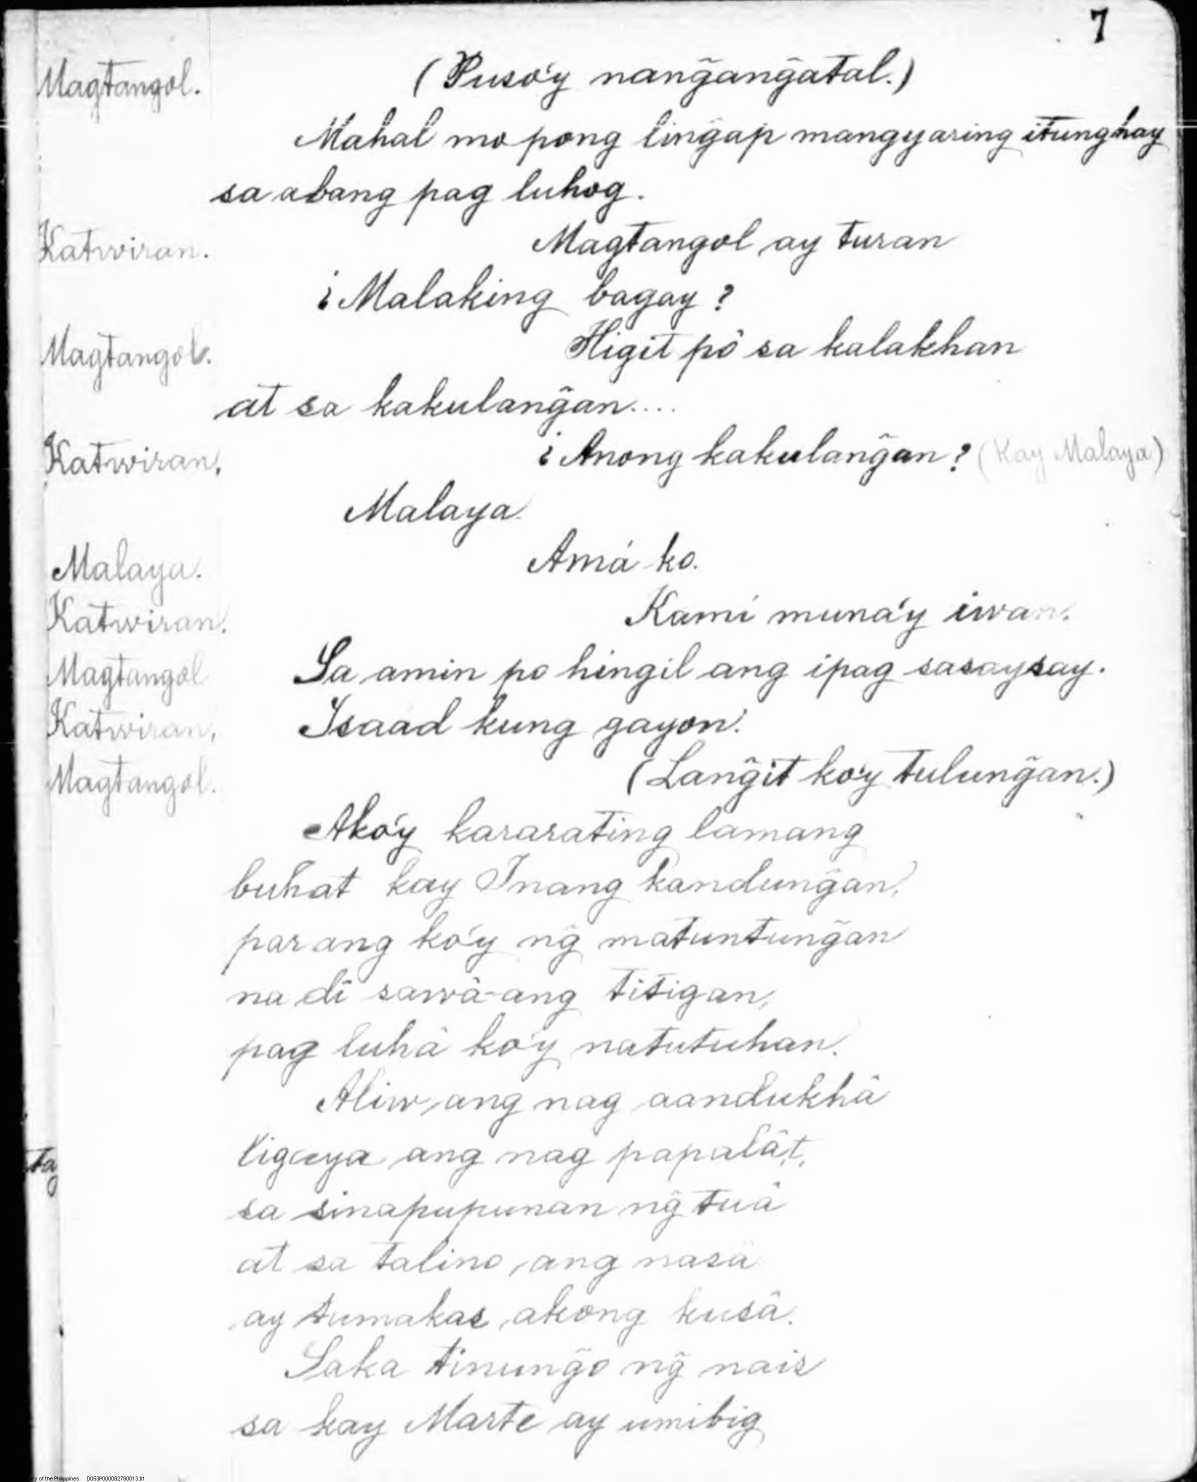 7
Magtangol. (Puso'y nang̃ang̃atal.)
Mahal mo pong ling̃ap mangyaring itunghay
sa abang pag luhog.
Katwiran. Magtangol ay turan
¿Malaking bagay?
Magtangol. Higit pô sa kalakhan
at sa kakulang̃an....
Katwiran. ¿Anong kakulang̃an? (Kay Malaya)
Malaya.
Malaya. Amá ko.
Katwiran. Kamí muna'y iwan.
Magtangol Sa amin po hingil ang ipag sasaysay.
Katwiran. Isaad kung gayon.
Magtangol. (Lang̃it ko'y tulung̃an.)
Ako'y kararating lamang
buhat kay Inang kandung̃an,
parang ko'y ng̃ matuntung̃an
na dî sawâ-ang titigan,
pag luhâ ko'y natutuhan.
Aliw ang nag aandukhâ
ligaya ang nag papalât,
sa sinapupunan ng̃ tuâ
at sa talino ang nasa
ay tumakas akong kusâ.
Saka tinung̃o ng̃ nais
sa kay Marte ay umibig
ta
y of the Philippines D053P00008278001331